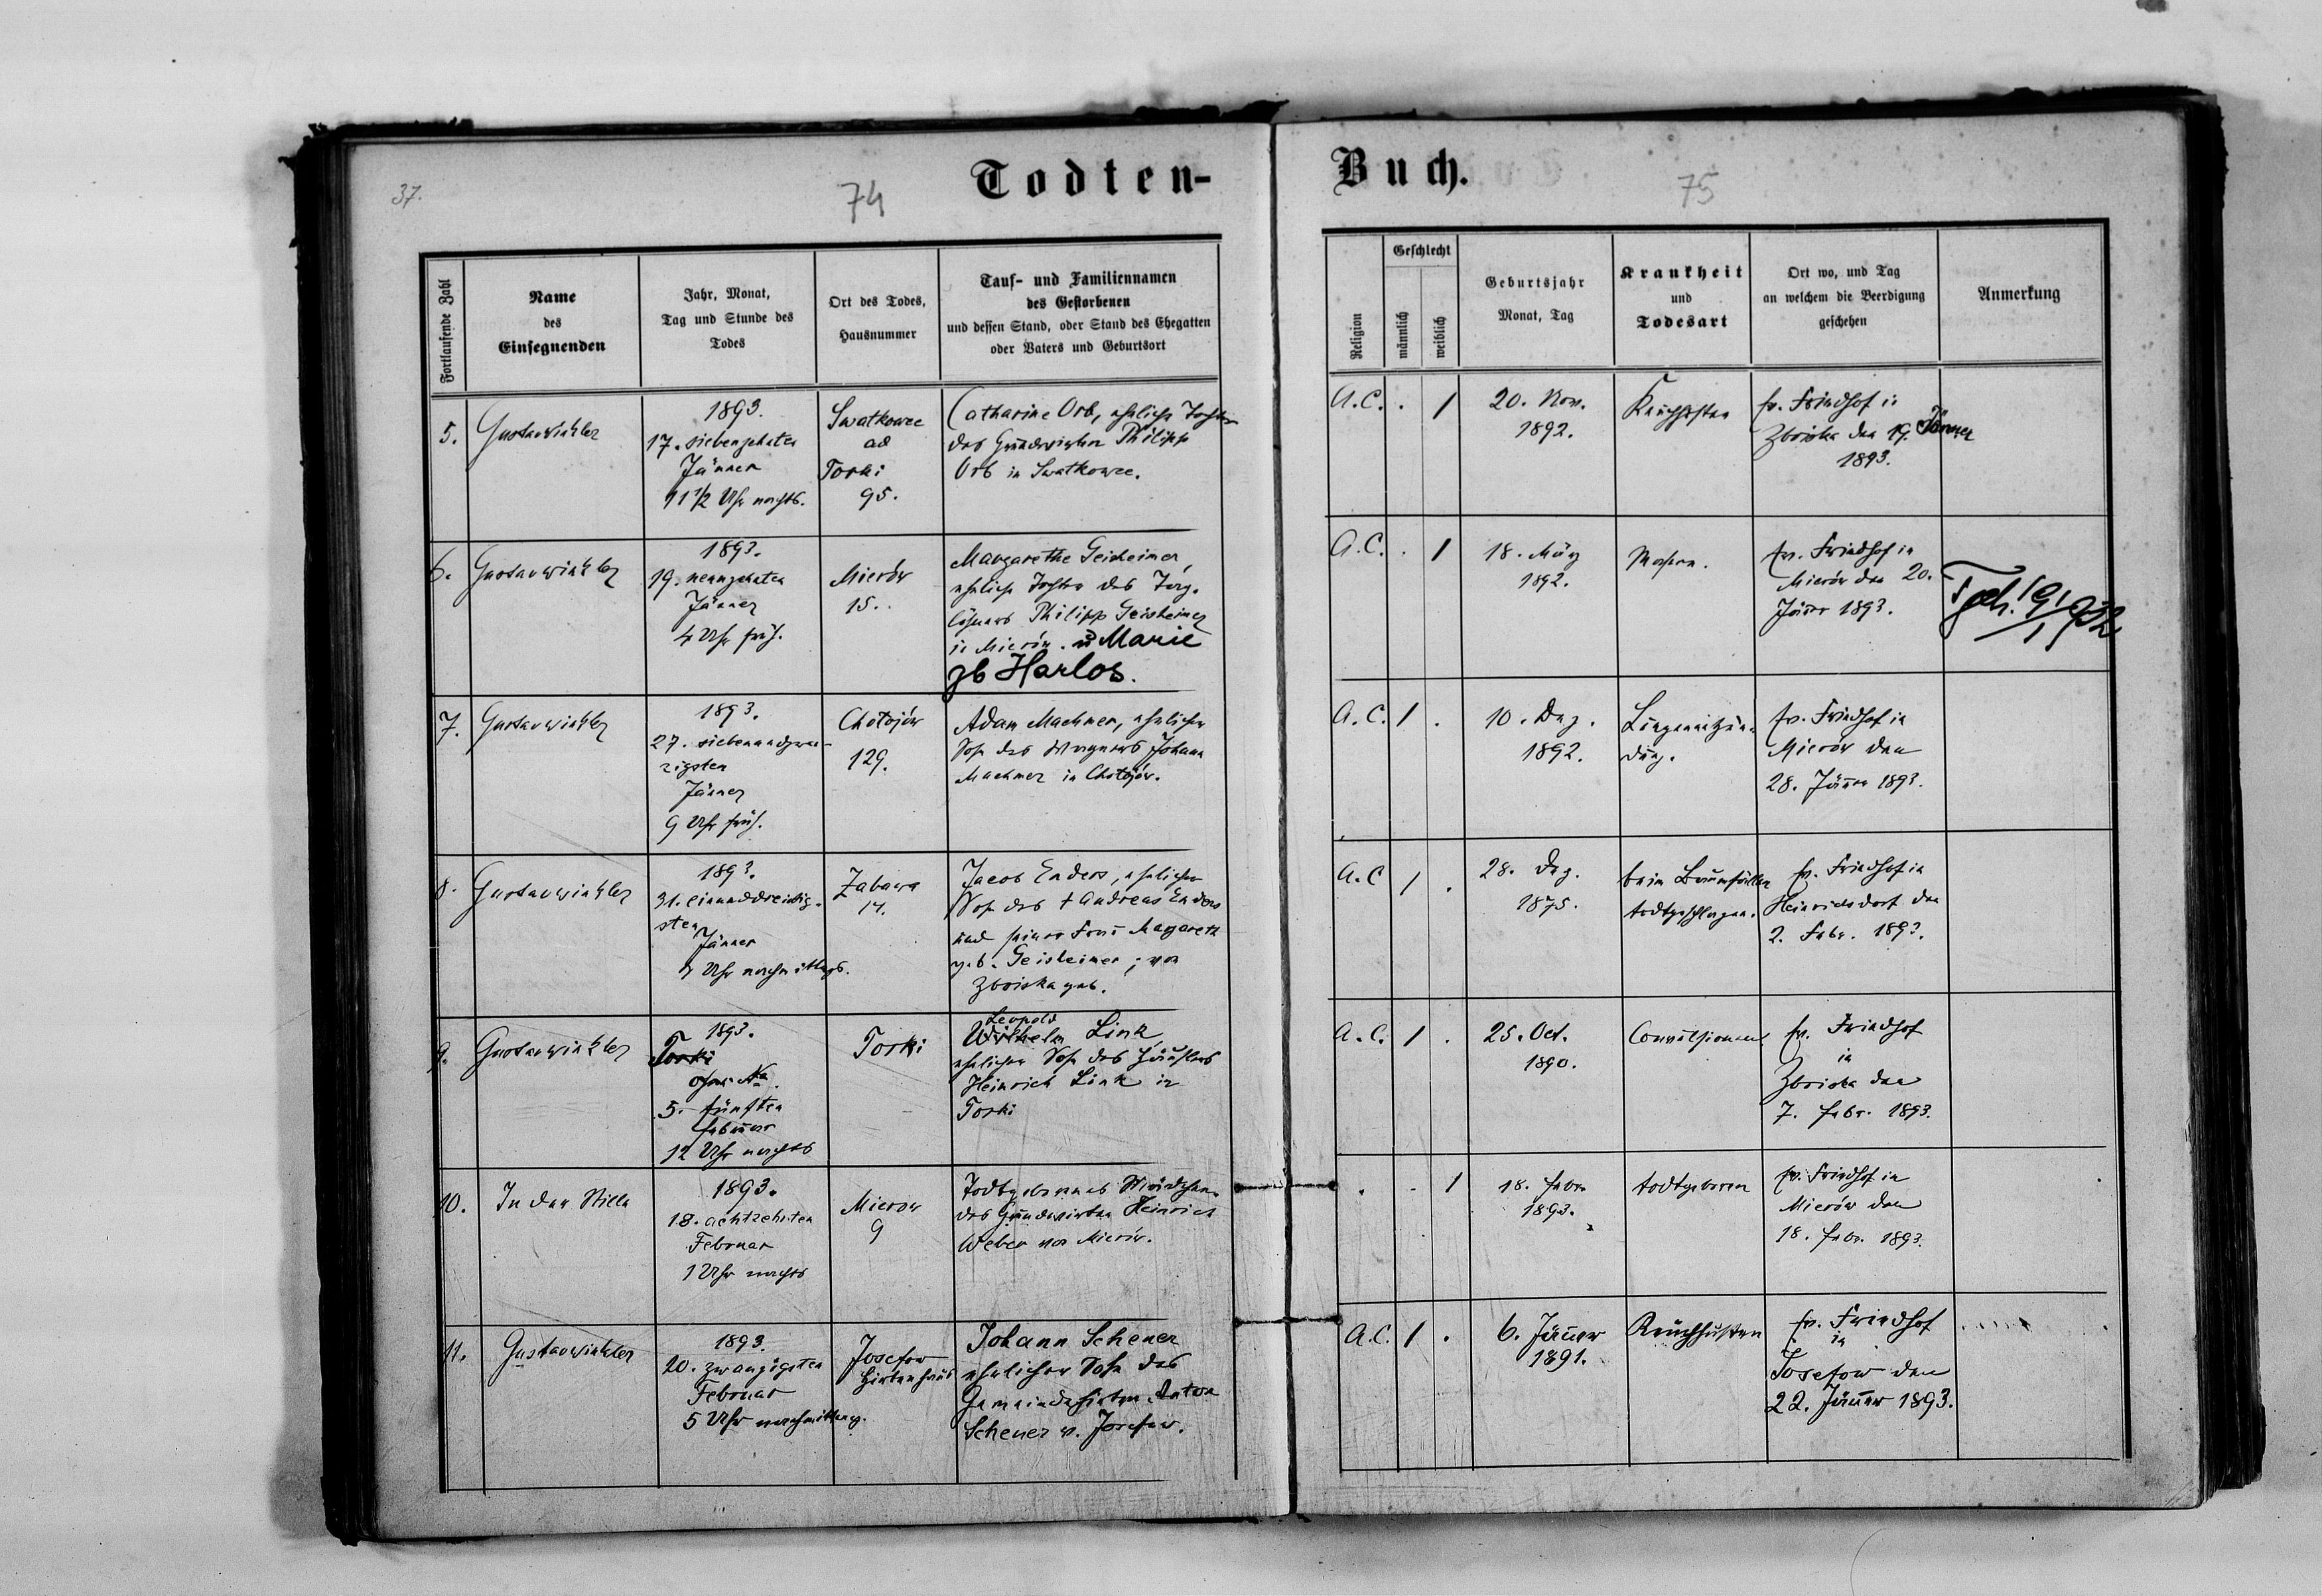 37.
74
Todten-
Buch.
75
Fortlaufende Zahl
Name
des
Einsegnenden
Jahr, Monat,
Tag und Stunde des
Todes
Ort des Todes,
Hausnummer
Tauf- und Familiennamen
des Gestorbenen
und dessen Stand, oder Stand des Ehegatten
oder Vaters und Geburtsort
Religion
Geschlecht
männlich
weiblich
Geburtsjahr
Monat, Tag
Krankheit
und
Todesart
Ort wo, und Tag
an welchem die Beerdigung
geschehen
Anmerkung
5.
Gustav Winkler
1893.
17. siebenzehnten
Jänner
11 1/2 Uhr nachts.
Swatkowce
ad
Torki
95.
Catharine Orb, eheliche Tochter
des Grundwirten Philipp
Orb in Swatkowce.
A.C.
.
1
20. Nov.
1892.
Keuchhusten
ev. Friedhof in
Zboiska den 19. Jänner
1893.
6.
Gustav Winkler
1893.
19. neunzehnten
Jänner
4 Uhr früh.
Mierów
15.
Margarethe Geisheimer,
eheliche Tochter des Tag-
löhners Philipp Geisheimer
in Mierów. u Marie
gb Harlos.
A.C.
.
1
18. März
1892.
Masern.
ev. Friedhof in
Mierów den 20.
Jänner 1893.
7.
Gustav Winkler
1893.
27. siebenundzwan-
zigsten
Jänner
9 Uhr früh.
Chotojów
129.
Adam Machmer, ehelicher
Sohn des Wagners Johann
Machmer in Chotojów.
A.C.
1
.
10. Dez.
1892.
Lungenentzün-
dung.
ev. Friedhof in
Mierów den
28. Jänner 1893.
8.
Gustav Winkler
1893.
31. einunddreißig-
sten
Jänner
4 Uhr nachmittags.
Zabawa
Jacob Enders, ehelicher
Sohn des + Andreas Enders
und seiner Frau Magareth
geb. Geisheimer; von
Zboiska geb.
A.C
1
.
28. Dez.
1875.
beim Baumfällen
todtgeschlagen.
ev. Friedhof in
Heinrichsdorf den
2. Febr. 1893.
9.
Gustav Winkler
1893.
Torki
ohne No.
5. fünften
Februar
12 Uhr nachts
Torki
Leopold
Wilhelm Link,
ehelicher Sohn des Häuslers
Heinrich Link in
Torki
A.C.
1
.
25. Oct.
1890.
Convulsionen
ev. Friedhof
in
Zboiska den
7. Febr. 1893.
10.
In der Stille
1893.
18. achtzehnten
Februar
1 Uhr nachts
Mierow
9
Todtgeborenes Mädchen
des Grundwirten Heinrich
Weber von Mierów.
.
.
1
18. Febr.
1893.
todtgeboren
ev. Friedhof in
Mierów den
18. Febr. 1893.
11.
Gustav Winkler
1893.
20. zwanzigsten
Februar
5 Uhr nachmittag.
Josefow
Hirtenhaus
Johann Scheuer
ehelicher Sohn des
Gemeindehirten Anton
Scheuer v. Josefow.
A.C.
1
.
6. Jänner
1891.
Keuchhusten
ev. Friedhof
in
Josefow den
22. Jänner 1893.